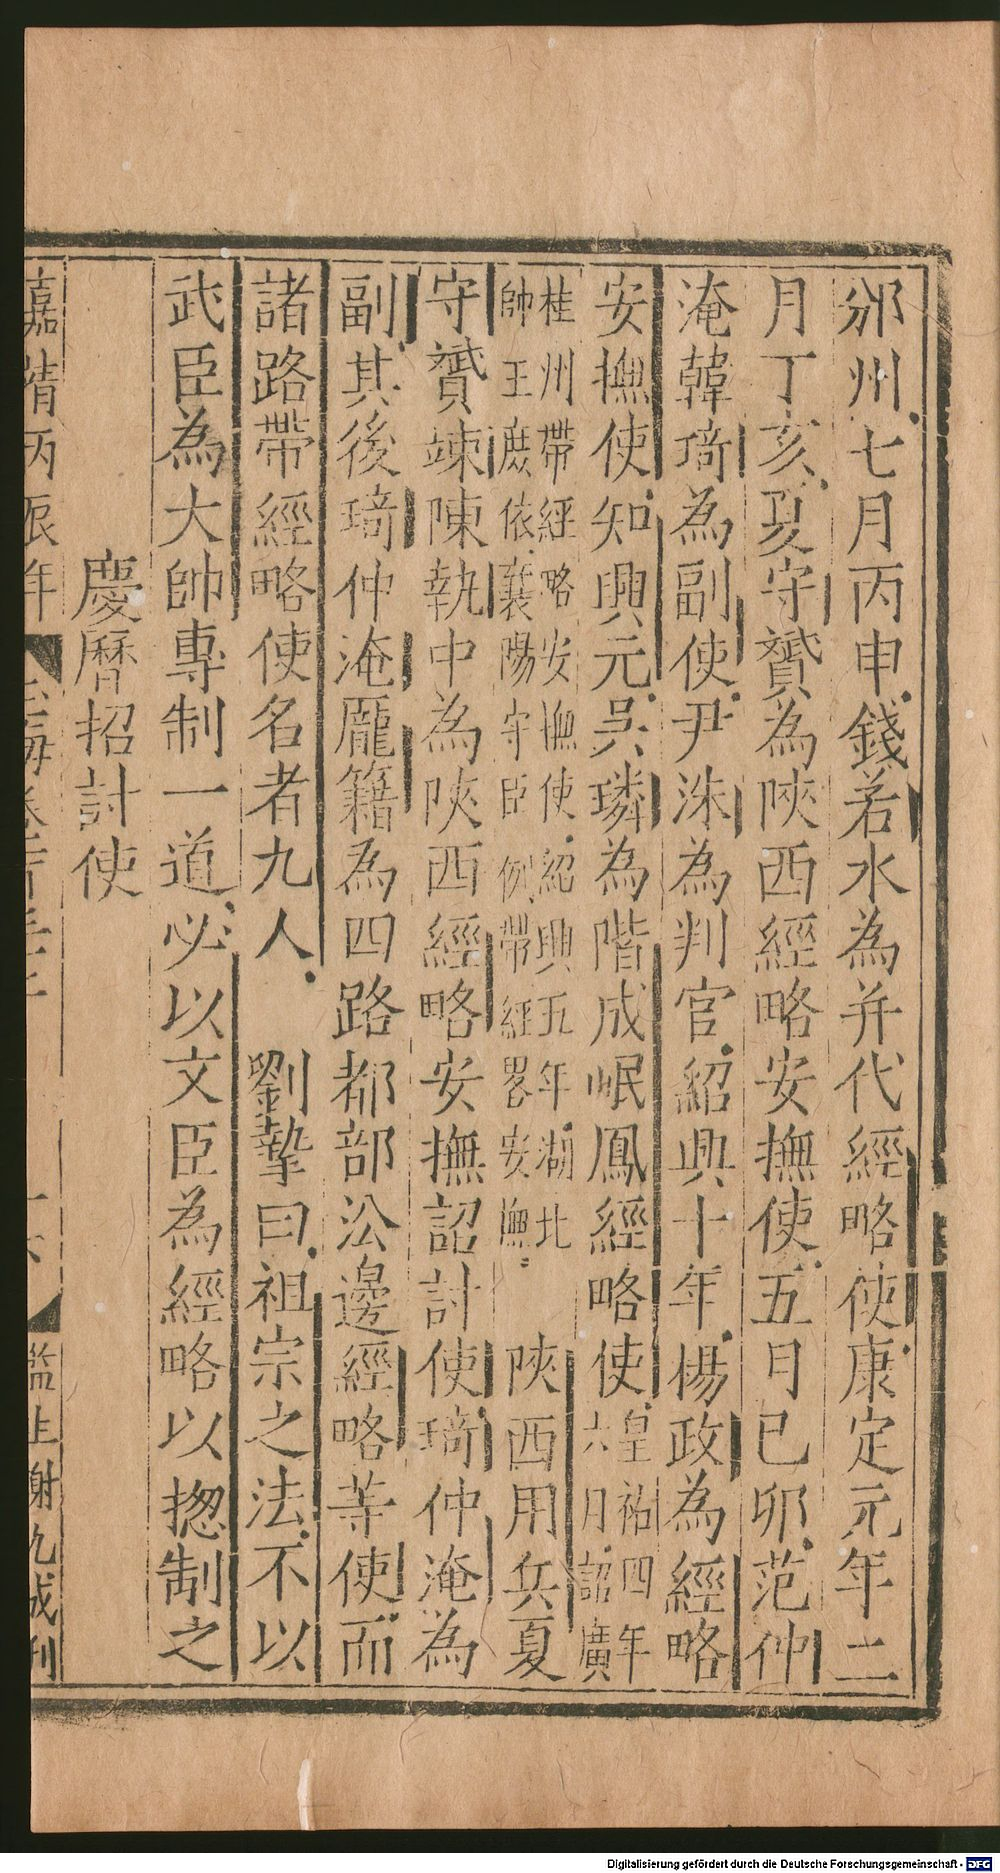 邠州七月丙申錢若水為并代經略使康定元年二
月丁亥夏守贇為陝西經略安撫使五月已卯范仲
淹韓琦為副使尹洙為判官紹興十年楊政為經略
安撫使知興元吳璘為階成岷鳳經略使皇祐四年六月詔廣
桂州帶經略安撫使紹興五年湖北帥王庶依襄陽守臣例帶經畧安撫 陝西用兵夏
守贇竦陳執中為陝西經略安撫詔討使琦仲淹為
副其後琦仲淹龐籍為四路都部㳂邊經略等使而
諸路帶經略使名者九人 劉摯曰祖宗之法不以
武臣為大帥專制一道必以文臣為經略以揔制之
慶曆招討使
嘉靖丙辰年 玉海卷 監生謝九成刊
Digitalisierung gefördert durch die Deutsche Forschungsgemeinschaft - DFG